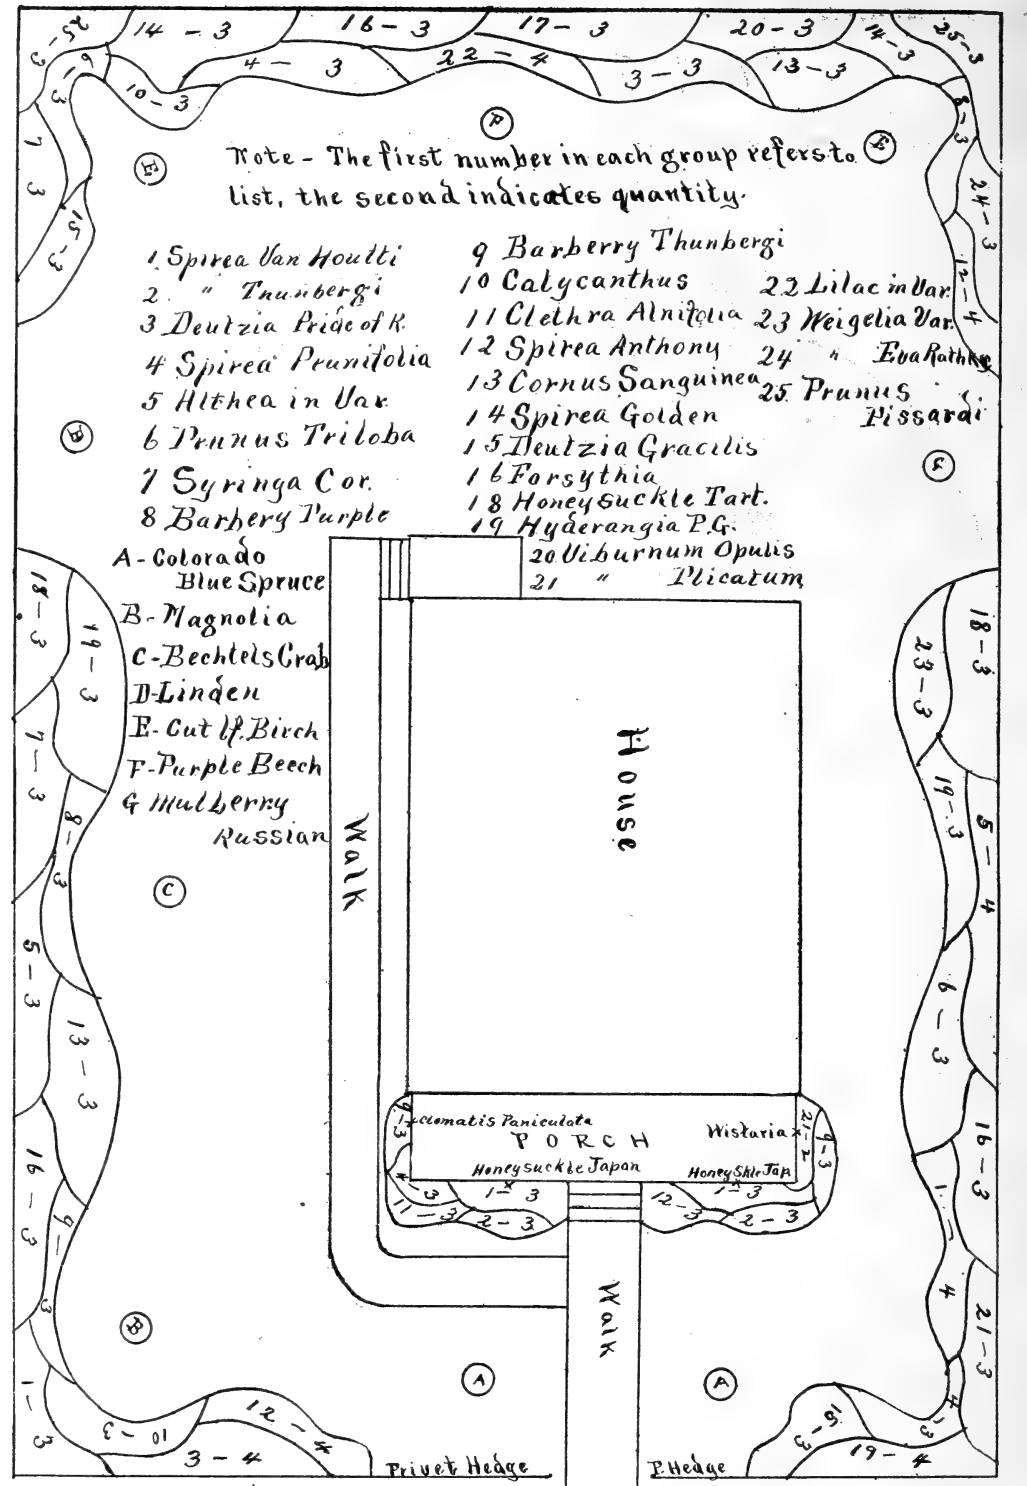 25-3
14-3
16-3
17-3
20-3
14-3
25-3
6-3
10-3
4-3
22-4
3-3
13-3
8-3
7-3
15-3
24-3
12-4
E
F
E
Note - The first number in each group refers to
list, the second indicates quantity.
1 Spirea Van Houtti
2. " Thunbergi
3 Deutzia Pride of R.
4 Spirea Prunifolia
5 Althea in Var.
6 Prunus Triloba
7 Syringa Cor.
8 Barbery Purple
9 Barberry Thunbergi
10 Calycanthus
11 Clethra Alnifolia
12 Spirea Anthony
13 Cornus Sanguinea
14 Spirea Golden
15 Deutzia Gracilis
16 Forsythia
18 Honeysuckle Tart.
19 Hyderangia P.G.
20 Viburnum Opulis
21 " Plicatum
22 Lilac in Var.
23 Weigelia Var.
24 " Eva Rathke
25. Prunus
Pissardi
A-Colorado
Blue Spruce
B-Magnolia
C-Bechtels Crab
D-Linden
E-Cut lf. Birch
F-Purple Beech
G Mulberry
Russian
G
18-3
19-3
7-3
8-3
C
5-3
13-3
16-3
9-3
B
1-3
10-3
12-4
3-4
18-3
23-3
19-3
5-4
6-3
16-3
1-4
21-3
4-3
15-3
19-4
House
Walk
9-3
Clematis Paniculata
PORCH
Wistaria x
21-2
9-3
Honeysuckle Japan
Honey Skle Jap
x
x
4-3
1-3
11-3
2-3
12-3
1-3
2-3
Walk
A
A
Privet Hedge
P. Hedge